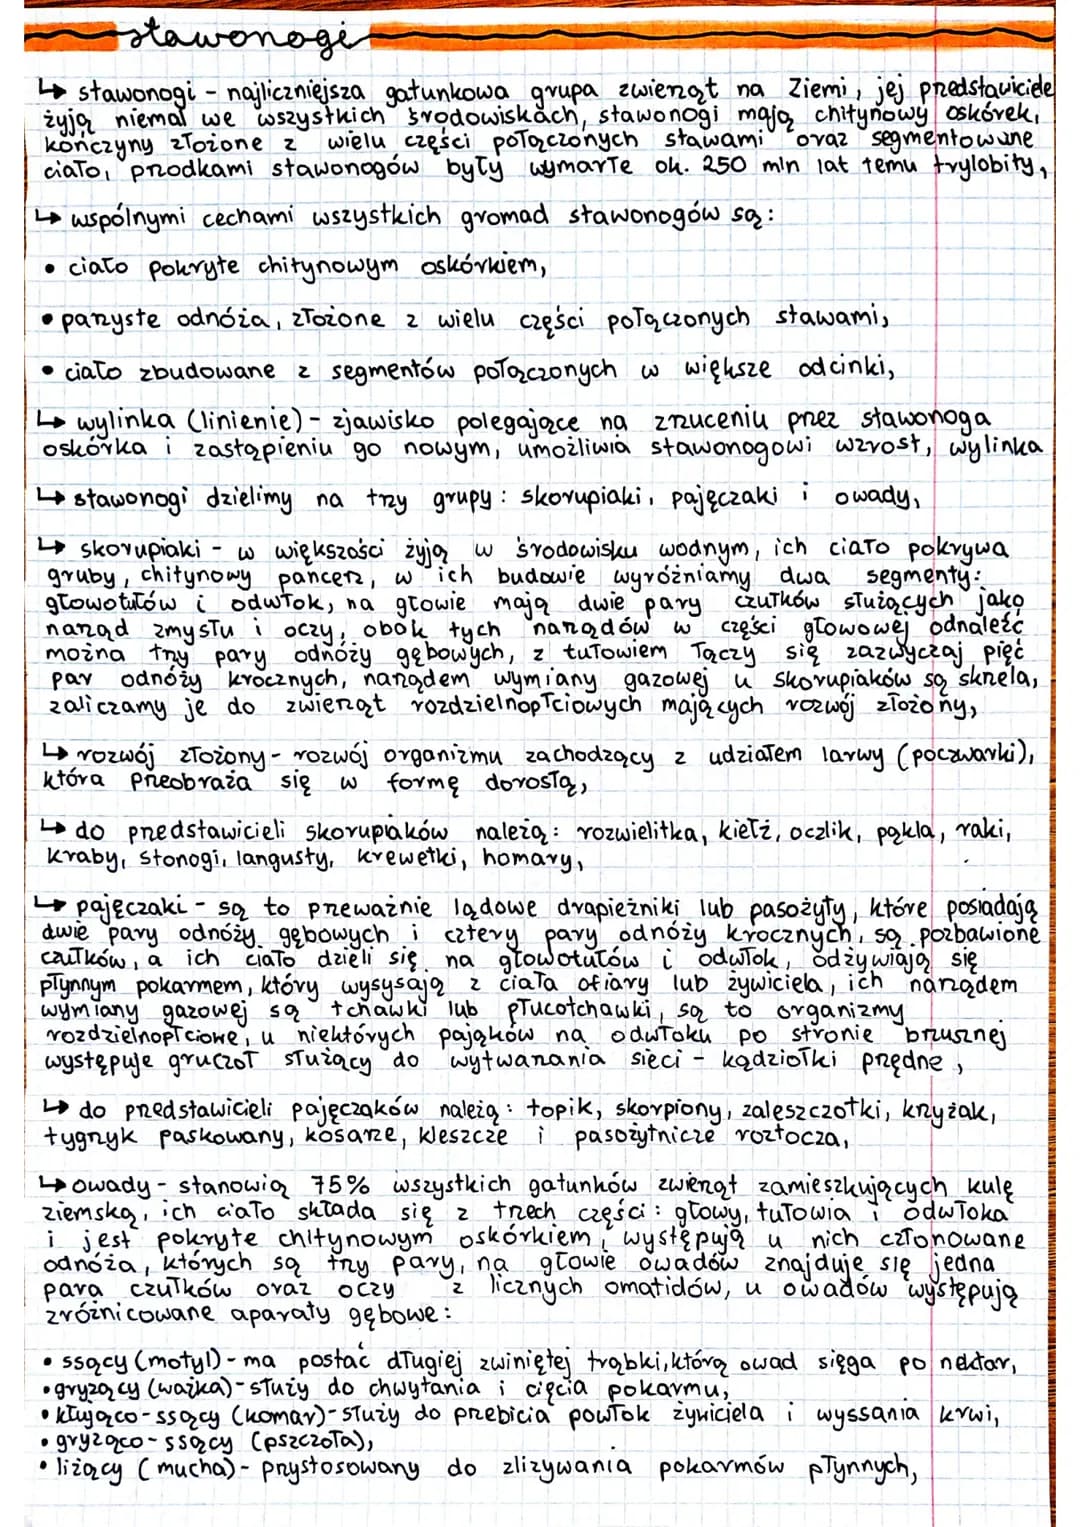 stawonogi
↳ stawonogi - najliczniejsza gatunkowa grupa zwierząt na Ziemi, jej przedstawiciele
żyją niemal we wszystkich środowiskach, stawonogi mają chitynowy oskórek,
kończyny złożone z wielu części połączonych stawami oraz segmentowane
ciało, przodkami stawonogów były wymarłe ok. 250 mln lat temu trylobity,
↳ wspólnymi cechami wszystkich gromad stawonogów są:
• ciało pokryte chitynowym oskórkiem,
• parzyste odnóża, złożone z wielu części połączonych stawami,
• ciało zbudowane z segmentów połączonych w większe odcinki,
↳ wylinka (linienie) - zjawisko polegające na zrzuceniu przez stawonoga
oskórka i zastąpieniu go nowym, umożliwia stawonogowi wzrost, wylinka
↳ stawonogi dzielimy na trzy grupy: skorupiaki, pajęczaki i owady,
↳ skorupiaki - w większości żyją w środowisku wodnym, ich ciało pokrywa
gruby, chitynowy pancerz, w ich budowie wyróżniamy dwa segmenty:
głowotułów i odwłok, na głowie mają dwie pary czułków służących jako
narząd zmysłu i oczy, obok tych narządów w części głowowej odnaleźć
można trzy pary odnóży gębowych, z tułowiem łączy się zazwyczaj pięć
par odnóży krocznych, narządem wymiany gazowej u skorupiaków są skrzela,
zaliczamy je do zwierząt rozdzielnopłciowych mających rozwój złożony,
↳ rozwój złożony - rozwój organizmu zachodzący z udziałem larwy (poczwarki),
która przeobraża się w formę dorosłą,
↳ do przedstawicieli skorupiaków należą: rozwielitka, kiełż, oczlik, pąkla, raki,
kraby, stonogi, langusty, krewetki, homary,
↳ pajęczaki - są to przeważnie lądowe drapieżniki lub pasożyty, które posiadają
dwie pary odnóży gębowych i cztery pary odnóży krocznych, są pozbawione
czułków, a ich ciało dzieli się na głowotułów i odwłok, odżywiają się
płynnym pokarmem, który wysysają z ciała ofiary lub żywiciela, ich narządem
wymiany gazowej są tchawki lub płucotchawki, są to organizmy
rozdzielnopłciowe, u niektórych pająków na odwłoku po stronie brzusznej
występuje gruczoł służący do wytwarzania sieci - kądziołki przędne,
↳ do przedstawicieli pajęczaków należą: topik, skorpiony, zaleszczotki, krzyżak,
tygrzyk paskowany, kosarze, kleszcze i pasożytnicze roztocza,
↳ owady - stanowią 75% wszystkich gatunków zwierząt zamieszkujących kulę
ziemską, ich ciało składa się z trzech części: głowy, tułowia i odwłoka
i jest pokryte chitynowym oskórkiem, występują u nich członowane
odnóża, których są trzy pary, na głowie owadów znajduje się jedna
para czułków oraz oczy z licznych omatidów, u owadów występują
zróżnicowane aparaty gębowe:
• ssący (motyl) - ma postać długiej zwiniętej trąbki, którą owad sięga po nektar,
• gryzący (ważka) - służy do chwytania i cięcia pokarmu,
• kłująco-ssący (komar) - służy do przebicia powłok żywiciela i wyssania krwi,
• gryząco-ssący (pszczoła),
• liżący (mucha) - przystosowany do zlizywania pokarmów płynnych,